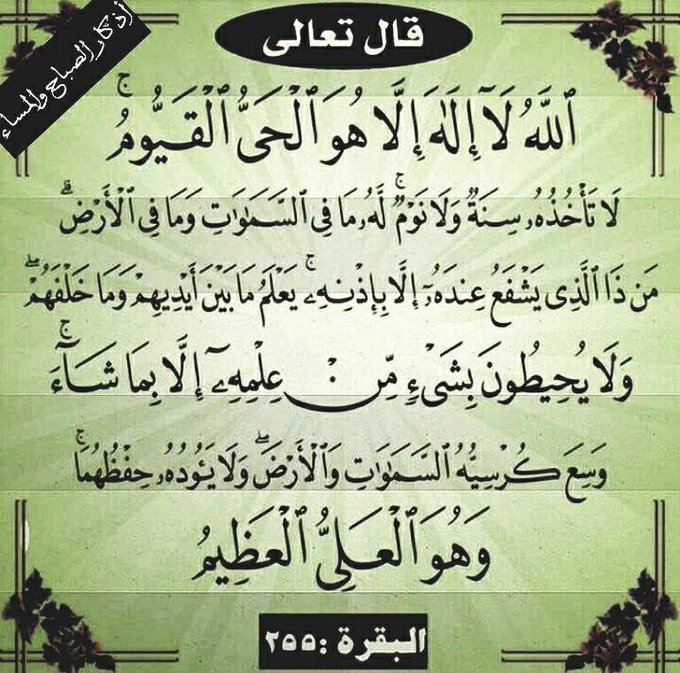 أذكار الصباح والمساء
قال تعالى
ٱللَّهُ لَآ إِلَٰهَ إِلَّا هُوَ ٱلْحَىُّ ٱلْقَيُّومُ ۚ
لَا تَأْخُذُهُۥ سِنَةٌ وَلَا نَوْمٌ ۚ لَّهُۥ مَا فِى ٱلسَّمَٰوَٰتِ وَمَا فِى ٱلْأَرْضِ ۗ
مَن ذَا ٱلَّذِى يَشْفَعُ عِندَهُۥٓ إِلَّا بِإِذْنِهِۦ ۚ يَعْلَمُ مَا بَيْنَ أَيْدِيهِمْ وَمَا خَلْفَهُمْ ۖ
وَلَا يُحِيطُونَ بِشَىْءٍ مِّنْ عِلْمِهِۦٓ إِلَّا بِمَا شَآءَ ۚ
وَسِعَ كُرْسِيُّهُ ٱلسَّمَٰوَٰتِ وَٱلْأَرْضَ ۖ وَلَا يَـُٔودُهُۥ حِفْظُهُمَا ۚ
وَهُوَ ٱلْعَلِىُّ ٱلْعَظِيمُ
البقرة :٢٥٥